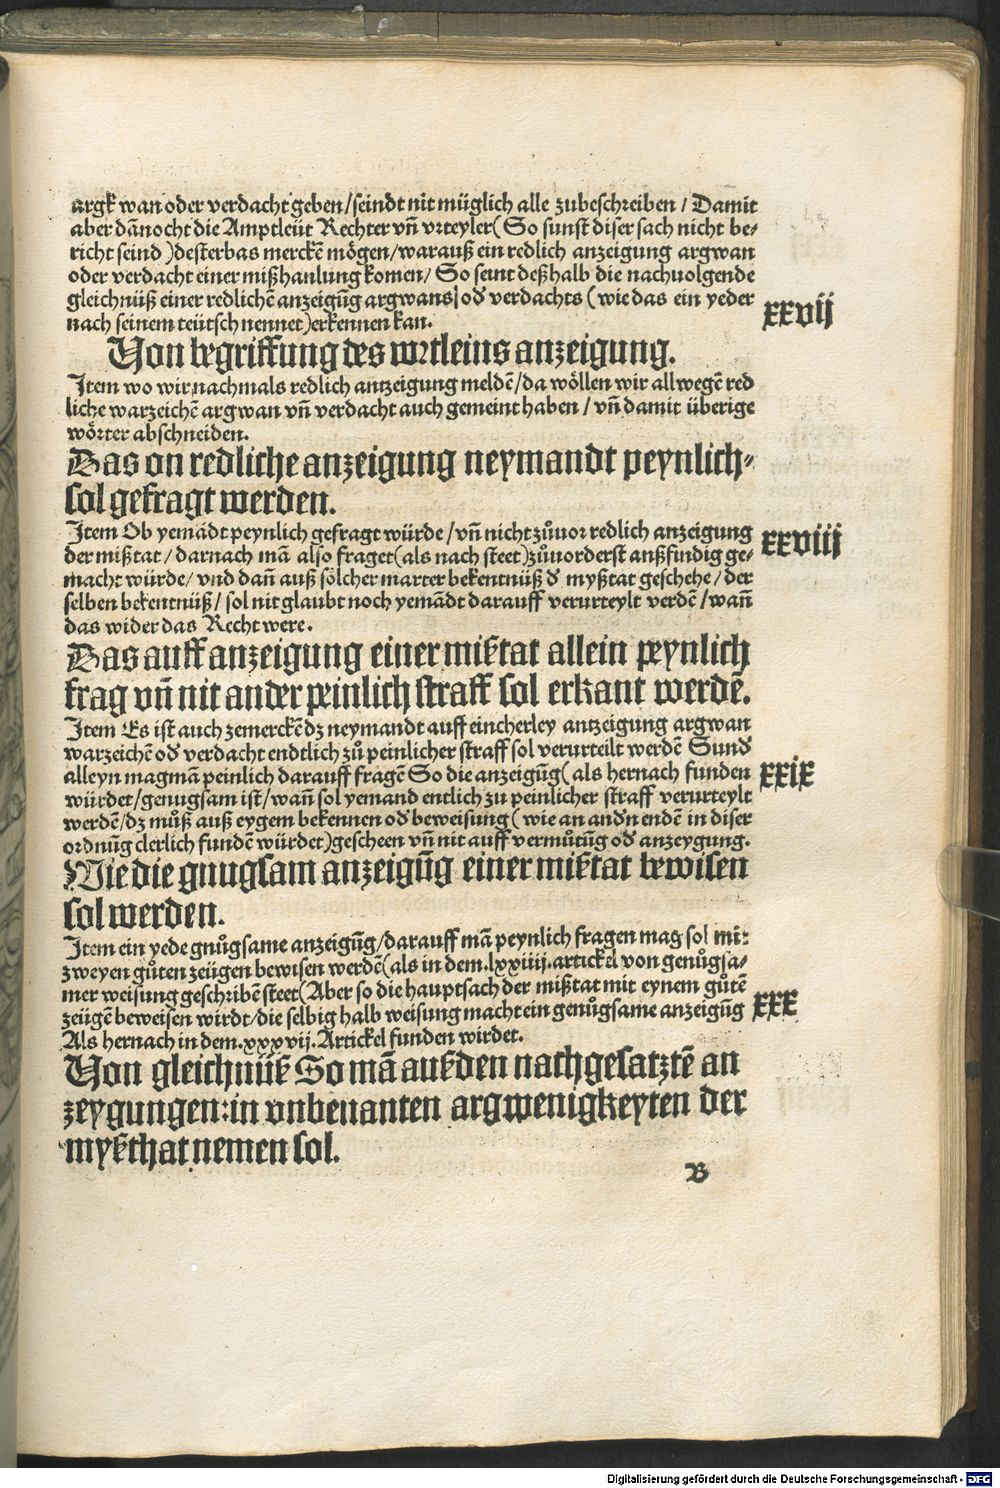 argk wan oder verdacht geben/seindt nit müglich alle zubeschreiben/Damit
aber dãnocht die Amptleüt Rechter vñ vrteyler(So sunst diser sach nicht be-
richt seind)desterbas merckẽ mögen/warauß ein redlich anzeigung argwan
oder verdacht einer mißhanlung komen/So seint deßhalb die nachuolgende
gleichnüß einer redlichẽ anzeigũg argwans/oď verdachts(wie das ein yeder
nach seinem teütsch nennet)erkennen kan.
xxvij
Von begriffung des wortleins anzeigung.
Item wo wir nachmals redlich antzeigung meldẽ/da wöllen wir allwegẽ red
liche warzeichẽ argwan vñ verdacht auch gemeint haben/vñ damit überige
wörter abschneiden.
Das on redliche anzeigung neymandt peynlich-
sol gefragt werden.
Item Ob yemãdt peynlich gefragt würde/vñ nicht zůuor redlich anzeigung
xxviii
der mißtat/darnach mã also fraget(als nach steet)zůuorderst anßfindig ge-
macht würde/vnd dañ auß sölcher marter bekentnüß ď myßtat geschehe/der
selben bekentnüß/sol nit glaubt noch yemãdt darauff verurteylt verdẽ/wañ
das wider das Recht were.
Das auff anzeigung einer mißtat allein peynlich
frag vñ nit ander peinlich straff sol erkant werdẽ.
Item Es ist auch zemerckẽ dz neymandt auff eincherley antzeigung argwan
warzeichẽ oď verdacht endtlich zů peinlicher straff sol verurteilt werdẽ Sunď
alleyn mag mã peinlich darauff fragẽ So die anzeigũg(als hernach funden
xxix
würdet/genugsam ist/wañ sol yemand entlich zu peinlicher straff verurteylt
werdẽ/dz můß auß eygem bekennen oď beweisung(wie an anďn endẽ in diser
ordnũg clerlich fundẽ würdet)gescheen vñ nit auff vermůtũg oď anzeygung.
Wie die gnugsam anzeigũg einer mißtat bewisen
sol werden.
Item ein yede gnůgsame anzeigũg/darauff mã peynlich fragen mag sol mi:
zweyen gůten zeügen bewisen werdẽ(als in dem.lxxiiij.artickel von genůgsa-
mer weisung geschribẽ steet(Aber so die hauptsach der mißtat mit eynem gůtẽ
xxx
zeügẽ beweisen wirdt/die selbig halb weisung macht ein genůgsame anzeigũg
Als hernach in dem.xxxvij.Artickel funden wirdet.
Von gleichnüß So mã außden nachgesatztẽ an
zeygungen:in vnbenanten argwenigkeyten der
myßthat nemen sol.
B
Digitalisierung gefördert durch die Deutsche Forschungsgemeinschaft - DFG